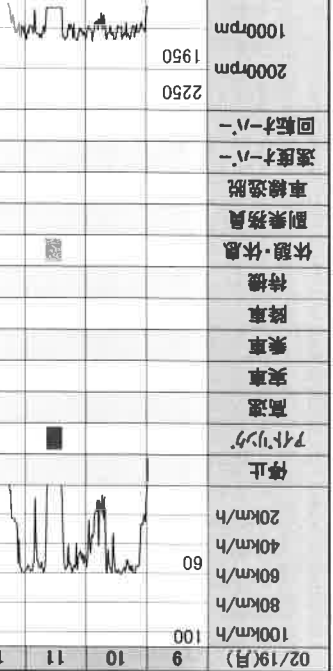 02/19(月) 9 10 11
100km/h 100
80km/h
60km/h 60
40km/h
20km/h
停止
アイドリング
高速
実車
乗車
降車
待機
休憩・休息
副乗務員
車線逸脱
速度オーバー
回転オーバー
2250
2000rpm
1950
1000rpm